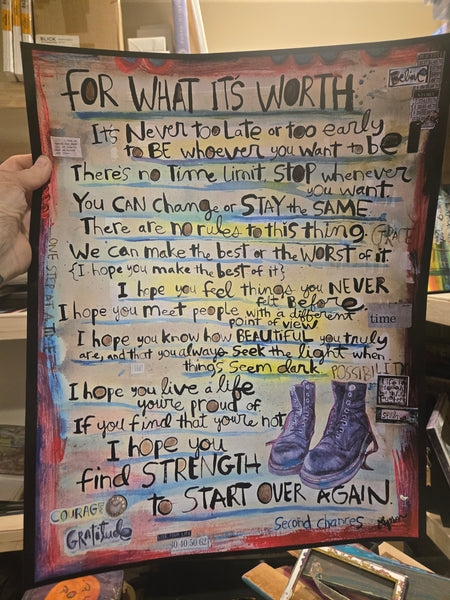 BLICK
FOR WHAT IT'S WORTH
Believe
It's Never too Late or too early
to BE whoever you want to be
There's no Time Limit. STOP whenever
you want
You CAN Change or STAY the SAME.
There are no rules to this thing.
GRACE
We can make the best or the WORST of it
{I hope you make the best of it}
I hope you feel things you NEVER
felt Before.
I hope you meet people with a different
point of view
time
I hope you know how BEAUTIFUL you truly
are, and that you always seek the light when
things seem dark.
POSSIBILITY
ONE STEP AT A TIME
I hope you live a life
you're proud of.
If you find that you're not
I hope you
find STRENGTH
to START OVER AGAIN.
COURAGE
GRATITUDE
30 40 50 62
Second Chances